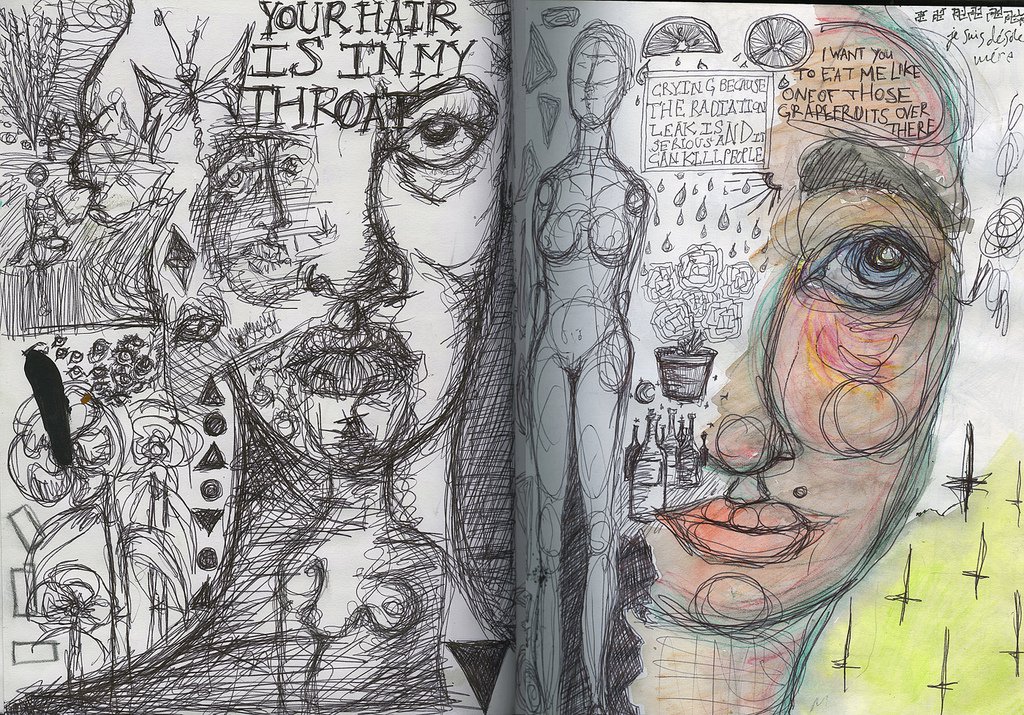 YOUR HAIR
IS IN MY
THROAT
CRYING BECAUSE
THE RADIATION
LEAK IS
SERIOUS AND IT
CAN KILL PEOPLE
I WANT YOU
TO EAT ME LIKE
ONE OF THOSE
GRAPEFRUITS OVER
THERE
je suis